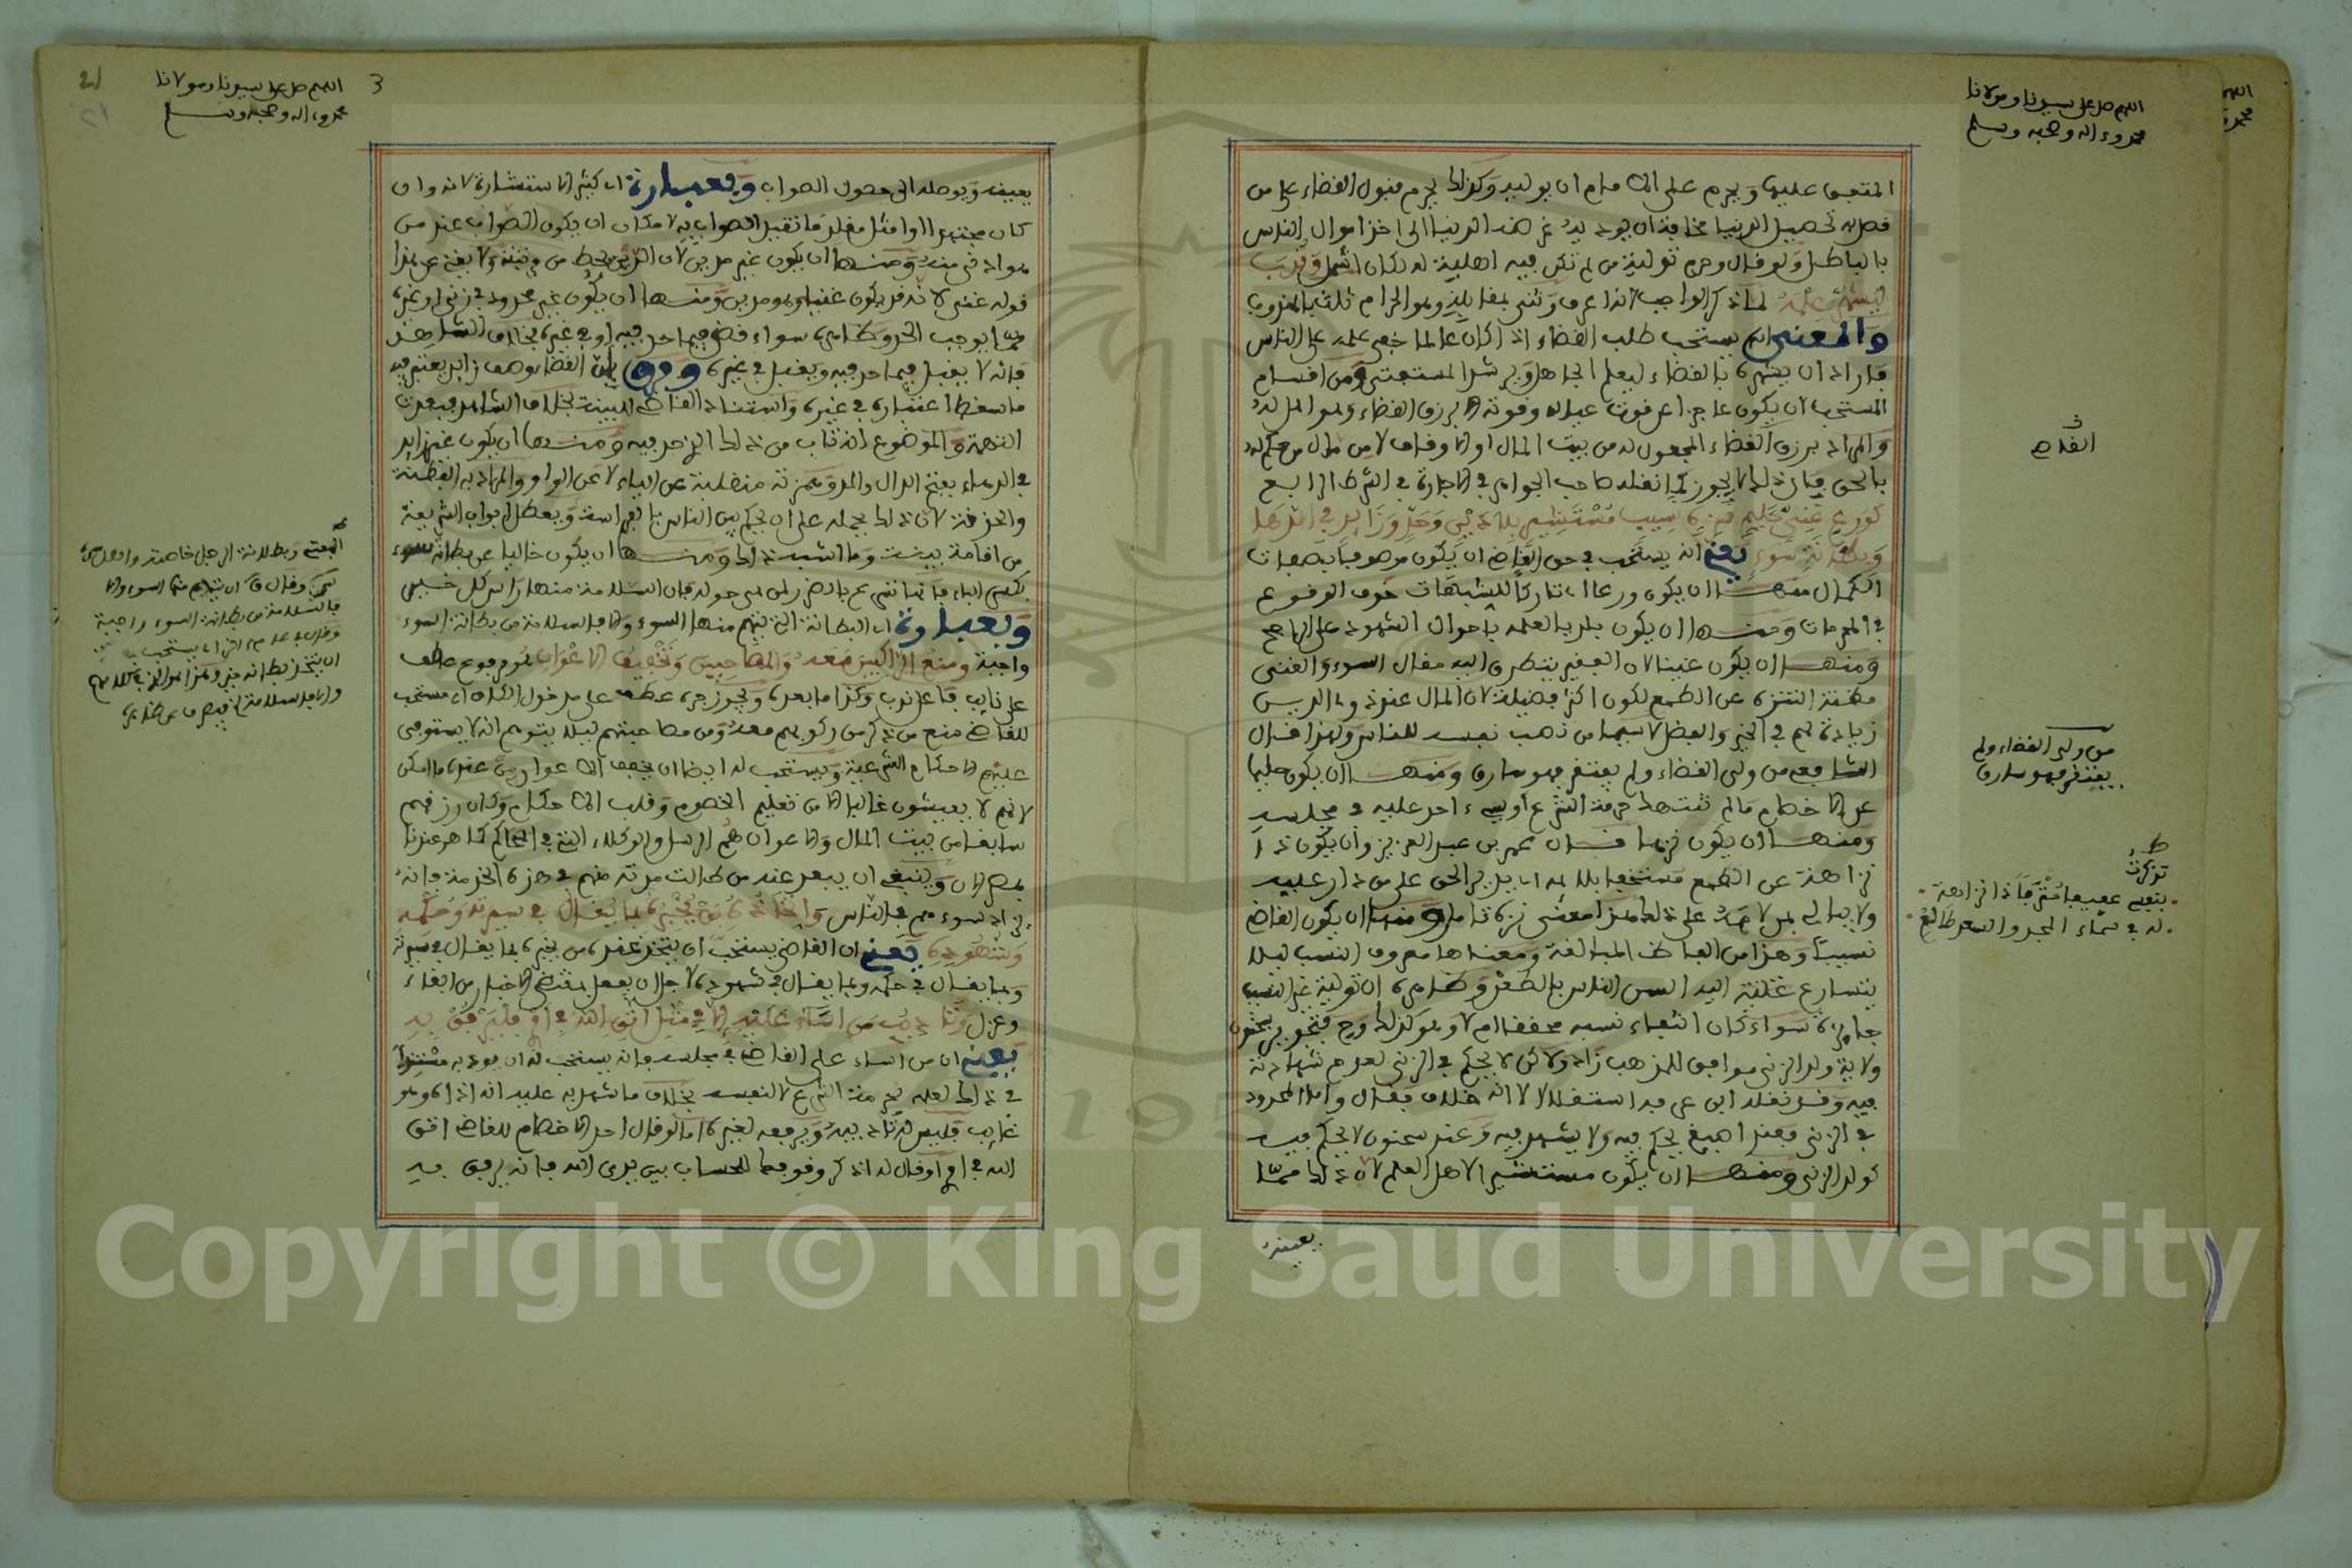 اللهم صل على سيدنا ومولانا
محمد وءاله وصحبه وسلم
المتعين عليه ويحرم على الامام ان يوليه وكذلك يحرم قبول القضاء على من
قصد به تحصيل الدنيا مخافة ان يوديه غرضه الدنيا الى اخذ اموال الناس
بالباطل ولو قال وحرم تولية من لم تكن فيه اهلية له لكان اشمل وندب
ليشهر علمه لما ذكر الواجب لذا عرف وثنى بمقابله وهو الحرام ثلث بالمندوب
والمعنى انه يستحب طلب القضاء اذا كان عالما خفي علمه على الناس
فاراد ان يشهره بالقضاء ليعلم الجاهل ويرشد المستفتي ومن اقسام
المستحب ان يكون عاجزا عن قوت عياله وقوته الا برزق القضاء وهو اهل له
والمراد برزق القضاء المجعول له من بيت المال او الاوقاف لا من مال من حكم له
بالحق فان ذلك لا يجوز كما نقله صاحب الجواهر في الاجارة في الشرط الرابع
كورع غني حليم نزه نسيب مستشير بلا دين وحد وزايد في الدها
وبطانة سوء يعني انه يستحب في حق القاضي ان يكون موصوفا بصفات
الكمال منها ان يكون ورعا اي تاركا للشبهات خوف الوقوع
في المحرمات ومنها ان يكون بلديا لعلمه باحوال الشهود على الراجح
ومنها ان يكون غنيا لان الفقير يتطرق اليه مقال السوء والغنى
مظنة التنزه عن الطمع لكون اكثر فضيلة لان المال عند ذوي الدين
زيادة لهم في الخير والفضل لا سيما من ذهب نفسه للناس ولهذا قال
الشافعي من ولي القضاء ولم يفتقر فهو سارق ومنها ان يكون حليما
عن الاخصام ما لم تنتهك حرمة الشرع او يسيء احد عليه في مجلسه
ومنها ان يكون نزها قال عمر بن عبد العزيز وان يكون ذا
نزاهة عن الطمع مستخفا بلايمة اي يدير الحق على من دار عليه
ولا يبالي بمن لامه على ذلك ومنها ان يكون القاضي
نسيبا وهذا من الفاظ المبالغة ومعناها معروف النسب ليلا
يتسارع اليه السن الناس بالطعن وظاهره ان تولية غير النسيب
جايزة سواء كان انتفاء نسبه محققا ام لا وهو كذلك وح فتجويز سحنون
ولاية ولد الزنى موافق للمذهب زاد ولاكن لا يحكم في الزنى لعدم شهادته
فيه وقد نقله ابن عرفة استقلالا لا انه خلاف فقال واما المحدود
في الزنى فعند اصبغ يحكم فيه ولا يشهد فيه وعند سحنون لا يحكم فيه
كولد الزنى ومنها ان يكون مستشيرا لاهل العلم لان ذلك مما
يعينه
القاضي
من ولي القضاء ولم
يفتقر فهو سارق
اللهم صل على سيدنا ومولانا
محمد وءاله وصحبه وسلم
3
21
يعينه ويوصله الى حصول الصواب وبعبارة اي كثير الاستشارة لانه وان
كان مجتهدا او امثل مقلد ما تقيد الصواب به لامكان ان يكون الصواب عند من
هو ادنى منه ومنها ان يكون غير مدين لان الدين يحط من رتبته ولا يغني عن هذا
قوله غني لانه قد يكون غنيا وهو مدين ومنها ان يكون غير محدود في زنى او غيره
مما يوجب الحد وظاهره سواء قضى فيما حد فيه او في غيره بخلاف الشاهد
فانه لا يقبل فيما حد فيه ويقبل في غيره وفرق بان القضا وصف زايد يعتبر فيه
ما سقط اعتباره في غيره واستناد القاضي للبينة بخلاف الشاهد فبعدت
التهمة والموضوع انه تاب من ذلك الذي حد فيه ومنها ان يكون غير زايد
في الدهاء بفتح الدال والمد وهمزته منقلبة عن الياء لا عن الواو والمراد به الفطنة
والحذق لان ذلك يحمله على ان يحكم بين الناس بالفراسة ويعطل ابواب الشريعة
من اقامة بينة وما اشبه ذلك ومنها ان يكون خاليا عن بطانة سوء
بكسر الباء فانما تتهم بالضرر لمن حوله فان السلامة منها راس كل خير
وبعبارة اي البطانة التي يتهم منها السوء والا فالسلامة من بطانة السوء
واجبة ومنع الراكبين معه والمصاحبين وتخفيف الاعوان مرفوع عطف
على نايب فاعل ندب وكذا ما بعده ويجوز جره عطفه على مدخول الكاف اي مستحب
للقاضي منع من ذكر من ركوبهم معه ومن مصاحبتهم ليلا يتوهم انه لا يستوفي
عليهم الاحكام الشرعية ويستحب له ايضا ان يخفف الاعوان من عنده ما امكن
لانهم لا يعيشون غالبا الا من تعليم الخصوم وقلب الاحكام وكان رزقهم
سابقا من بيت المال والاعوان هم الرسل والوكلاء التي في المحاكم كما هو عندنا
بمصر الان وينبغي ان يبعد عنه من طالت مدته منهم في هذه الخدمة فانه
يزداد سوءهم في الناس واتخاذ من يخبره بما يقال في سيرته وحكمه
وشهوده يعني ان القاضي يستحب ان يتخذ عنده من يخبره بما يقال في سيرته
وبما يقال في حكمه وبما يقال في شهوده لاجل ان يعمل بمقتضى الاخبار من ابقاء
وعزل وتاديب من اساء عليه الا في مثل اتق الله في امري فليرفق به
يعني ان من اساء على القاضي في مجلسه فانه يستحب له ان يودبه مستندا
في ذلك لعلمه لحرمة الشرع لا لنفسه بخلاف ما شهد به عليه انه اذاه وهو
غايب فليس له تاديبه ويرفعه لغيره اما لو قال احد الاخصام للقاضي اتق
الله في امري او قال له اذكر وقوفك للحساب بين يدي الله فانه يرفق به